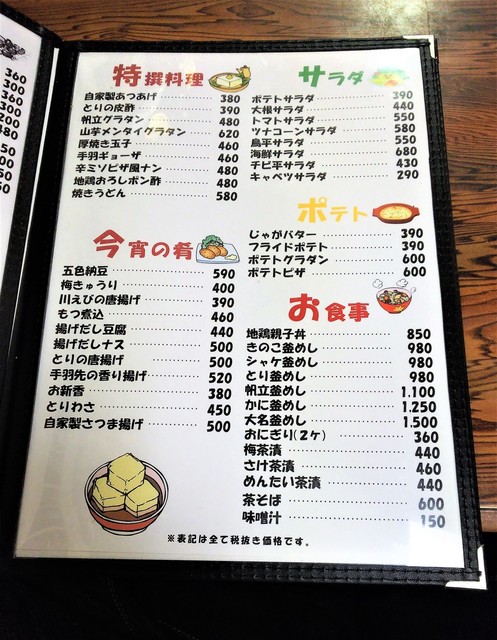 360
300
360
300
200
480
特撰料理
自家製あつあげ 380
とりの皮酢 390
帆立グラタン 480
山芋メンタイグラタン 620
厚焼き玉子 460
手羽ギョーザ 460
辛ミソピザ風ナン 480
地鶏おろしポン酢 480
焼きうどん 580
今宵の肴
五色納豆 590
梅きゅうり 400
川えびの唐揚げ 390
もつ煮込 460
揚げだし豆腐 440
揚げだしナス 500
とりの唐揚げ 500
手羽先の香り揚げ 520
お新香 380
とりわさ 450
自家製さつま揚げ 500
サラダ
ポテトサラダ 390
大根サラダ 440
トマトサラダ 550
ツナコーンサラダ 580
鳥平サラダ 550
海鮮サラダ 680
チビ平サラダ 430
キャベツサラダ 290
ポテト
じゃがバター 390
フライドポテト 390
ポテトグラタン 600
ポテトピザ 600
お食事
地鶏親子丼 850
きのこ釜めし 980
シャケ釜めし 980
とり釜めし 980
帆立釜めし 1.100
かに釜めし 1.250
大名釜めし 1.500
おにぎり(2ケ) 360
梅茶漬 440
さけ茶漬 460
めんたい茶漬 440
茶そば 600
味噌汁 150
※表記は全て税抜き価格です。